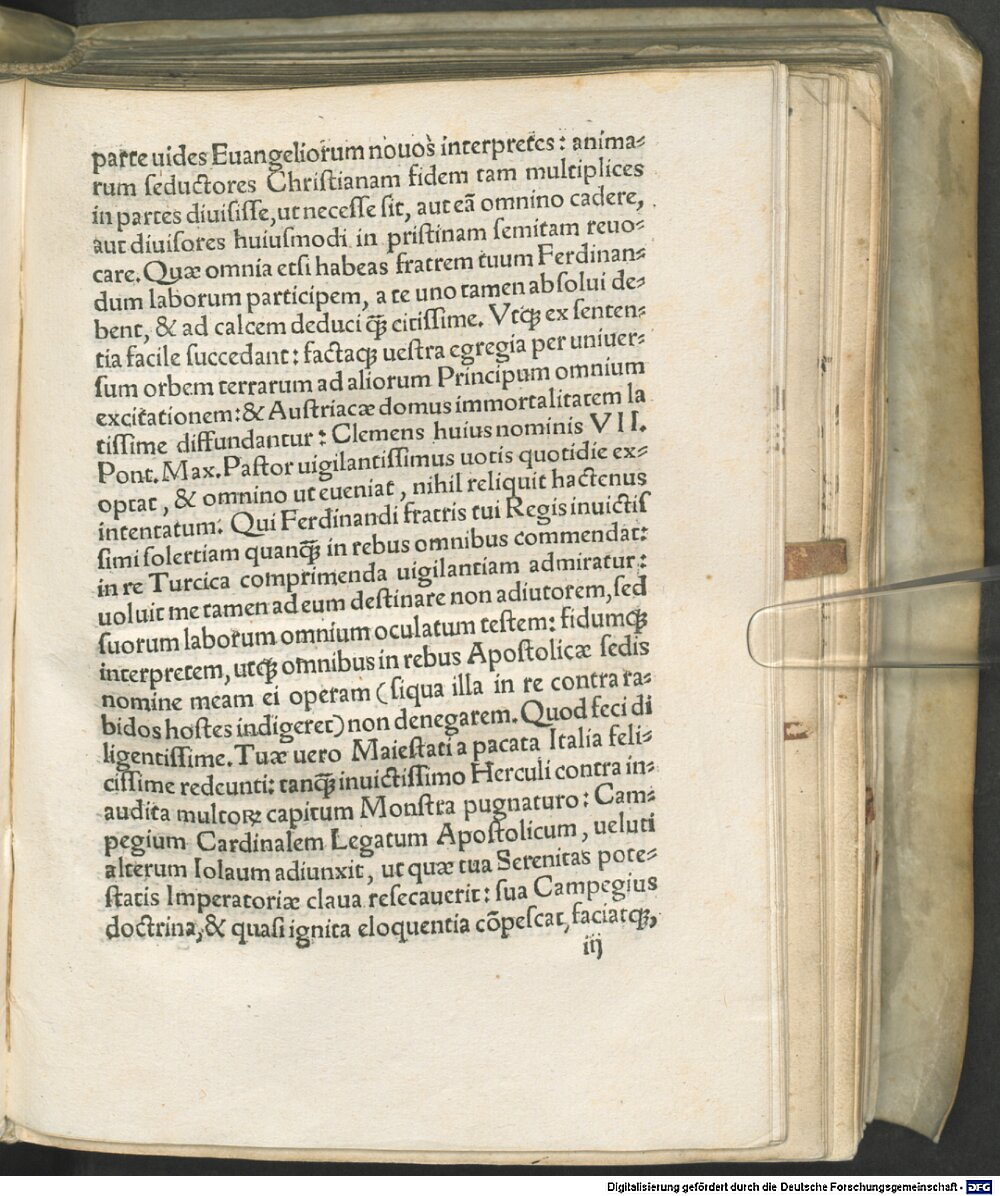 parte uides Euangeliorum nouos interpretes: anima⸗
rum ſeductores Chriſtianam fidem tam multiplices
in partes diuiſiſſe, ut neceſſe ſit, aut eã omnino cadere,
aut diuiſores huiuſmodi in priſtinam ſemitam reuo⸗
care. Quæ omnia etſi habeas fratrem tuum Ferdinan⸗
dum laborum participem, a te uno tamen abſolui de⸗
bent, & ad calcem deduci q̃ꝫ citiſſime. Vtqꝫ ex ſenten⸗
tia facile ſuccedant: factaqꝫ ueſtra egregia per uniuer⸗
ſum orbem terrarum ad aliorum Principum omnium
excitationem: & Auſtriacæ domus immortalitatem la
tiſſime diffundantur: Clemens huius nominis VII.
Pont. Max. Paſtor uigilantiſſimus uotis quotidie ex⸗
optat, & omnino ut eueniat, nihil reliquit hactenus
intentatum. Qui Ferdinandi fratris tui Regis inuictiſ
ſimi ſolertiam quanq̃ꝫ in rebus omnibus commendat:
in re Turcica comprimenda uigilantiam admiratur:
uoluit me tamen ad eum deſtinare non adiutorem, ſed
ſuorum laborum omnium oculatum teſtem: fidumqꝫ
interpretem, utqꝫ omnibus in rebus Apoſtolicæ ſedis
nomine meam ei operam (ſiqua illa in re contra ra⸗
bidos hoſtes indigeret) non denegarem. Quod feci di
ligentiſſime. Tuæ uero Maieſtati a pacata Italia feli⸗
ciſſime redeunti: tanq̃ꝫ inuictiſſimo Herculi contra in⸗
audita multoꝝ capitum Monſtra pugnaturo: Cam⸗
pegium Cardinalem Legatum Apoſtolicum, ueluti
alterum Iolaum adiunxit, ut quæ tua Serenitas pote⸗
ſtatis Imperatoriæ claua reſecauerit: ſua Campegius
doctrina, & quaſi ignita eloquentia cõpeſcat, faciatqꝫ,
iij
Digitalisierung gefördert durch die Deutsche Forschungsgemeinschaft - DFG